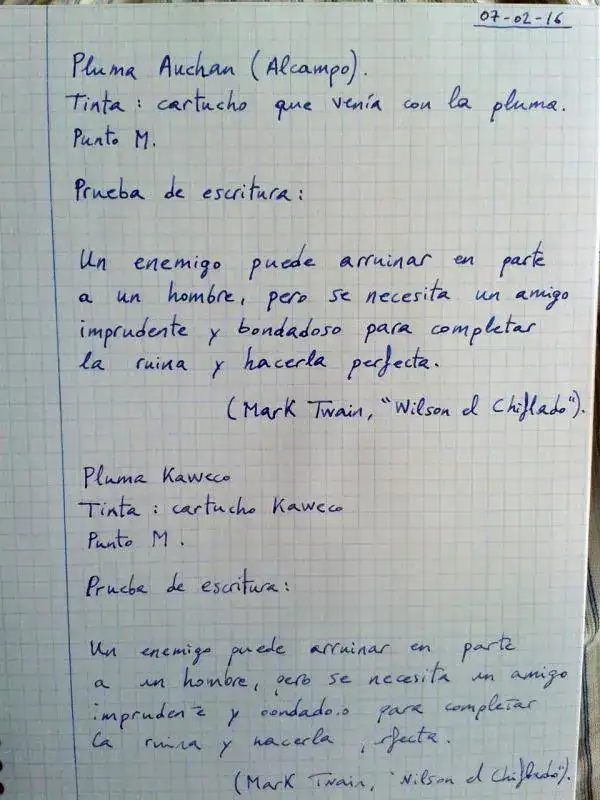 07-02-16
Pluma Auchan (Alcampo).
Tinta : cartucho que venía con la pluma.
Punto M.
Prueba de escritura :
Un enemigo puede arruinar en parte
a un hombre, pero se necesita un amigo
imprudente y bondadoso para completar
la ruina y hacerla perfecta.
(Mark Twain, "Wilson el Chiflado").
Pluma Kaweco
Tinta : cartucho Kaweco
Punto M .
Prueba de escritura :
Un enemigo puede arruinar en parte
a un hombre, pero se necesita un amigo
imprudente y bondadoso para completar
la ruina y hacerla
(Mark Twain, "Wilson el Chiflado").